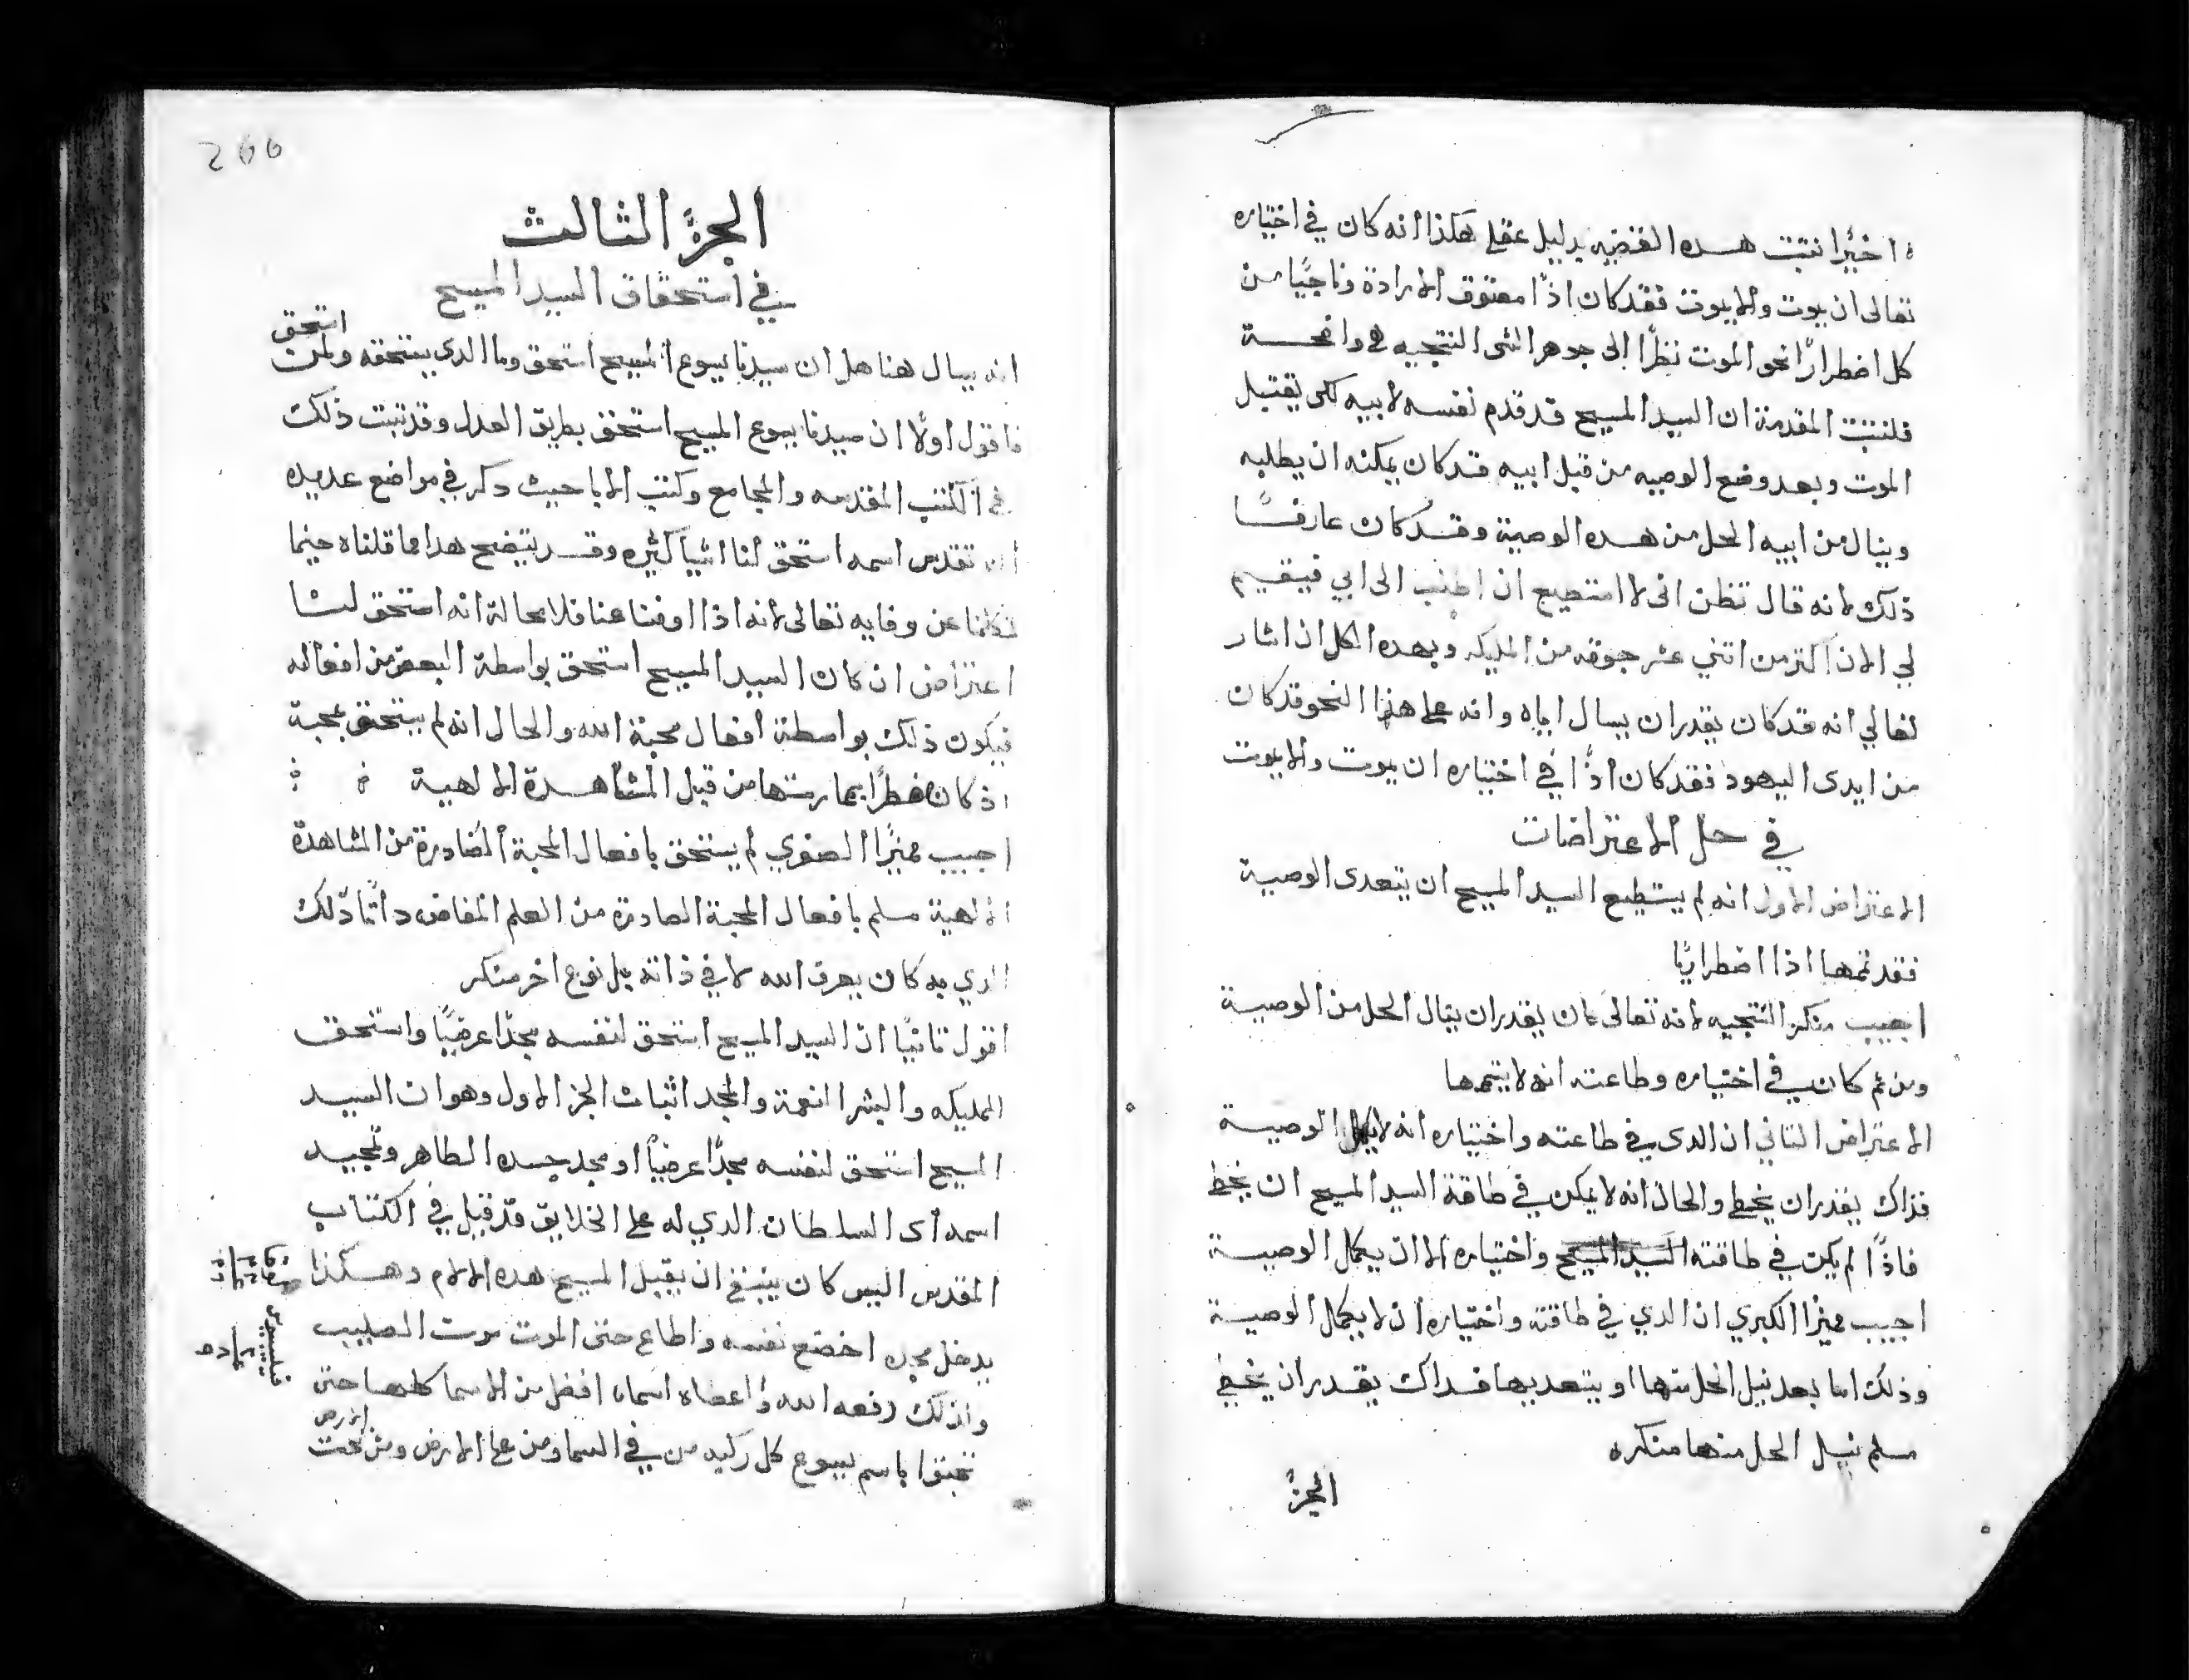 اخيرًا نتبت هده القضيه بدليل عقلي هكذا انه كان في اختياره
تعالى ان يموت والا يموت فقد كان اذًا معتوق الارادة وناجيًا من
كل اضطرارًا نحو الموت نظرًا الى جوهر الشي النتجيه هي واضحة
فلنتبت المقدمة ان السيد المسيح قد قدم نفسه لابيه لكي يقتبل
الموت وبعد وضع الوصيه من قبل ابيه قد كان يمكنه ان يطلبه
وينال من ابيه الحل من هده الوصية وقد كان عارفًا
ذلك لانه قال تظن اني لا استطيع ان اطلب الى ابي فيقيم
لي الان اكتر من اتني عشر جوقه من المليكه وبهده الكل ان اشار
تعالي انه قد كان يقدر ان يسال اباه وانه على هذا النحو قد كان
من ايدى اليهود فقد كان اذًا في اختياره ان يموت والا يموت
في حل الاعتراضات
الاعتراض الاول انه لم يستطيع السيد المسيح ان يتعدى الوصية
فقد تمها اذا اضطراريًا
اجيب منكر النتجيه لانه تعالى كان يقدر ان ينال الحل من الوصية
ومن تم كان في اختياره وطاعته انه لا يتمها
الاعتراض التاني ان الدى في طاعته واختياره انه لا يكمل الوصية
فذاك يقدر ان يخطي والحال انه لا يمكن في طاقة السيد المسيح ان يخطي
فاذًا لم يكن في طاقته السيد المسيح واختياره الا ان يكمل الوصية
اجيب مميزًا الكبري ان الدي في طاقة واختياره ان لا يكمل الوصية
وذلك اما بعد نيل الحل منها او يتعديها فداك يقدر ان يخطي
مسلم نيل الحل منها منكره
الجزؤ
266
الجزؤ الثالث
في استحقاق السيد المسيح
استحق
انه يسال هنا هل ان سيدنا يسوع المسيح استحق وما الدى يستحقه ولمن
فاقول اولًا ان سيدنا يسوع المسيح استحق بطريق العدل وقد تبت ذلك
في الكتب المقدسه والمجامع وكتب الابا حيث دكر في مواضع عديده
ان تقدس اسمه استحق لنا اشيا كثيره وقد يتضح هدا مما قلناه حينما
تكلمنا عن وفايه تعالى لانه اذا اوفا عنا فلا محالة انه استحق لنا
اعتراض ان كان السيد المسيح استحق بواسطة البعض من افعاله
فيكون ذلك بواسطة افعال محبة الله والحال انه لم يستحق بمحبة
اذ كان مضطرًا بممارستها من قبل المشاهدة الالهية
اجيب مميزًا الصغري لم يستحق بافعال المحبة الصادرة من المشاهدة
الالهية مسلم بافعال المحبة الصادرة من العلم المفاض دائمًا ذلك
الدي به كان يعرف الله لا في ذاته بل نوع اخر منكر
اقول تانيًا ان السيد المسيح استحق لنفسه مجدًا عرضيًا واستحق
المليكه والبشر النعمة والمجد اثبات الجز الاول وهو ان السيد
المسيح استحق لنفسه مجدًا عرضيًا او مجد جسده الطاهر وتمجيد
اسمه اى السلطان الدي له على الخلايق قد قيل في الكتاب
المقدس اليس كان ينبغي ان يقبل المسيح هده الالام وهكذا
يدخل مجده اخضع نفسه واطاع حتى الموت موت الصليب
ولذلك رفعه الله واعطاه اسما افضل من الاسما كلها حتى
تجتوا باسم يسوع كل ركبه من في السما ومن على الارض ومن تحت
الارض